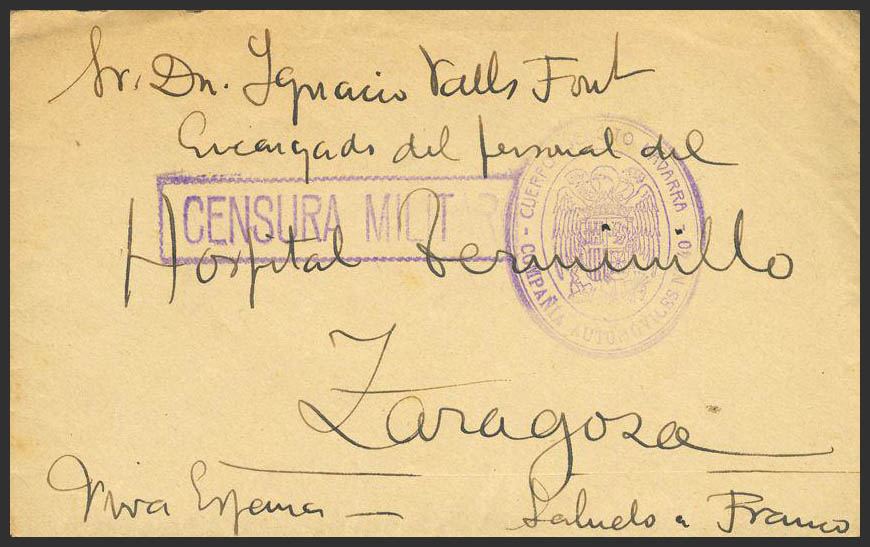 Sr. Dn. Ignacio Valls Font
Encargado del personal del
CENSURA MILITAR
Hospital
CUERPO NAVARRA
COMPAÑIA AUTOMOVILES
Zaragoza
Viva España —
Saludo a Franco